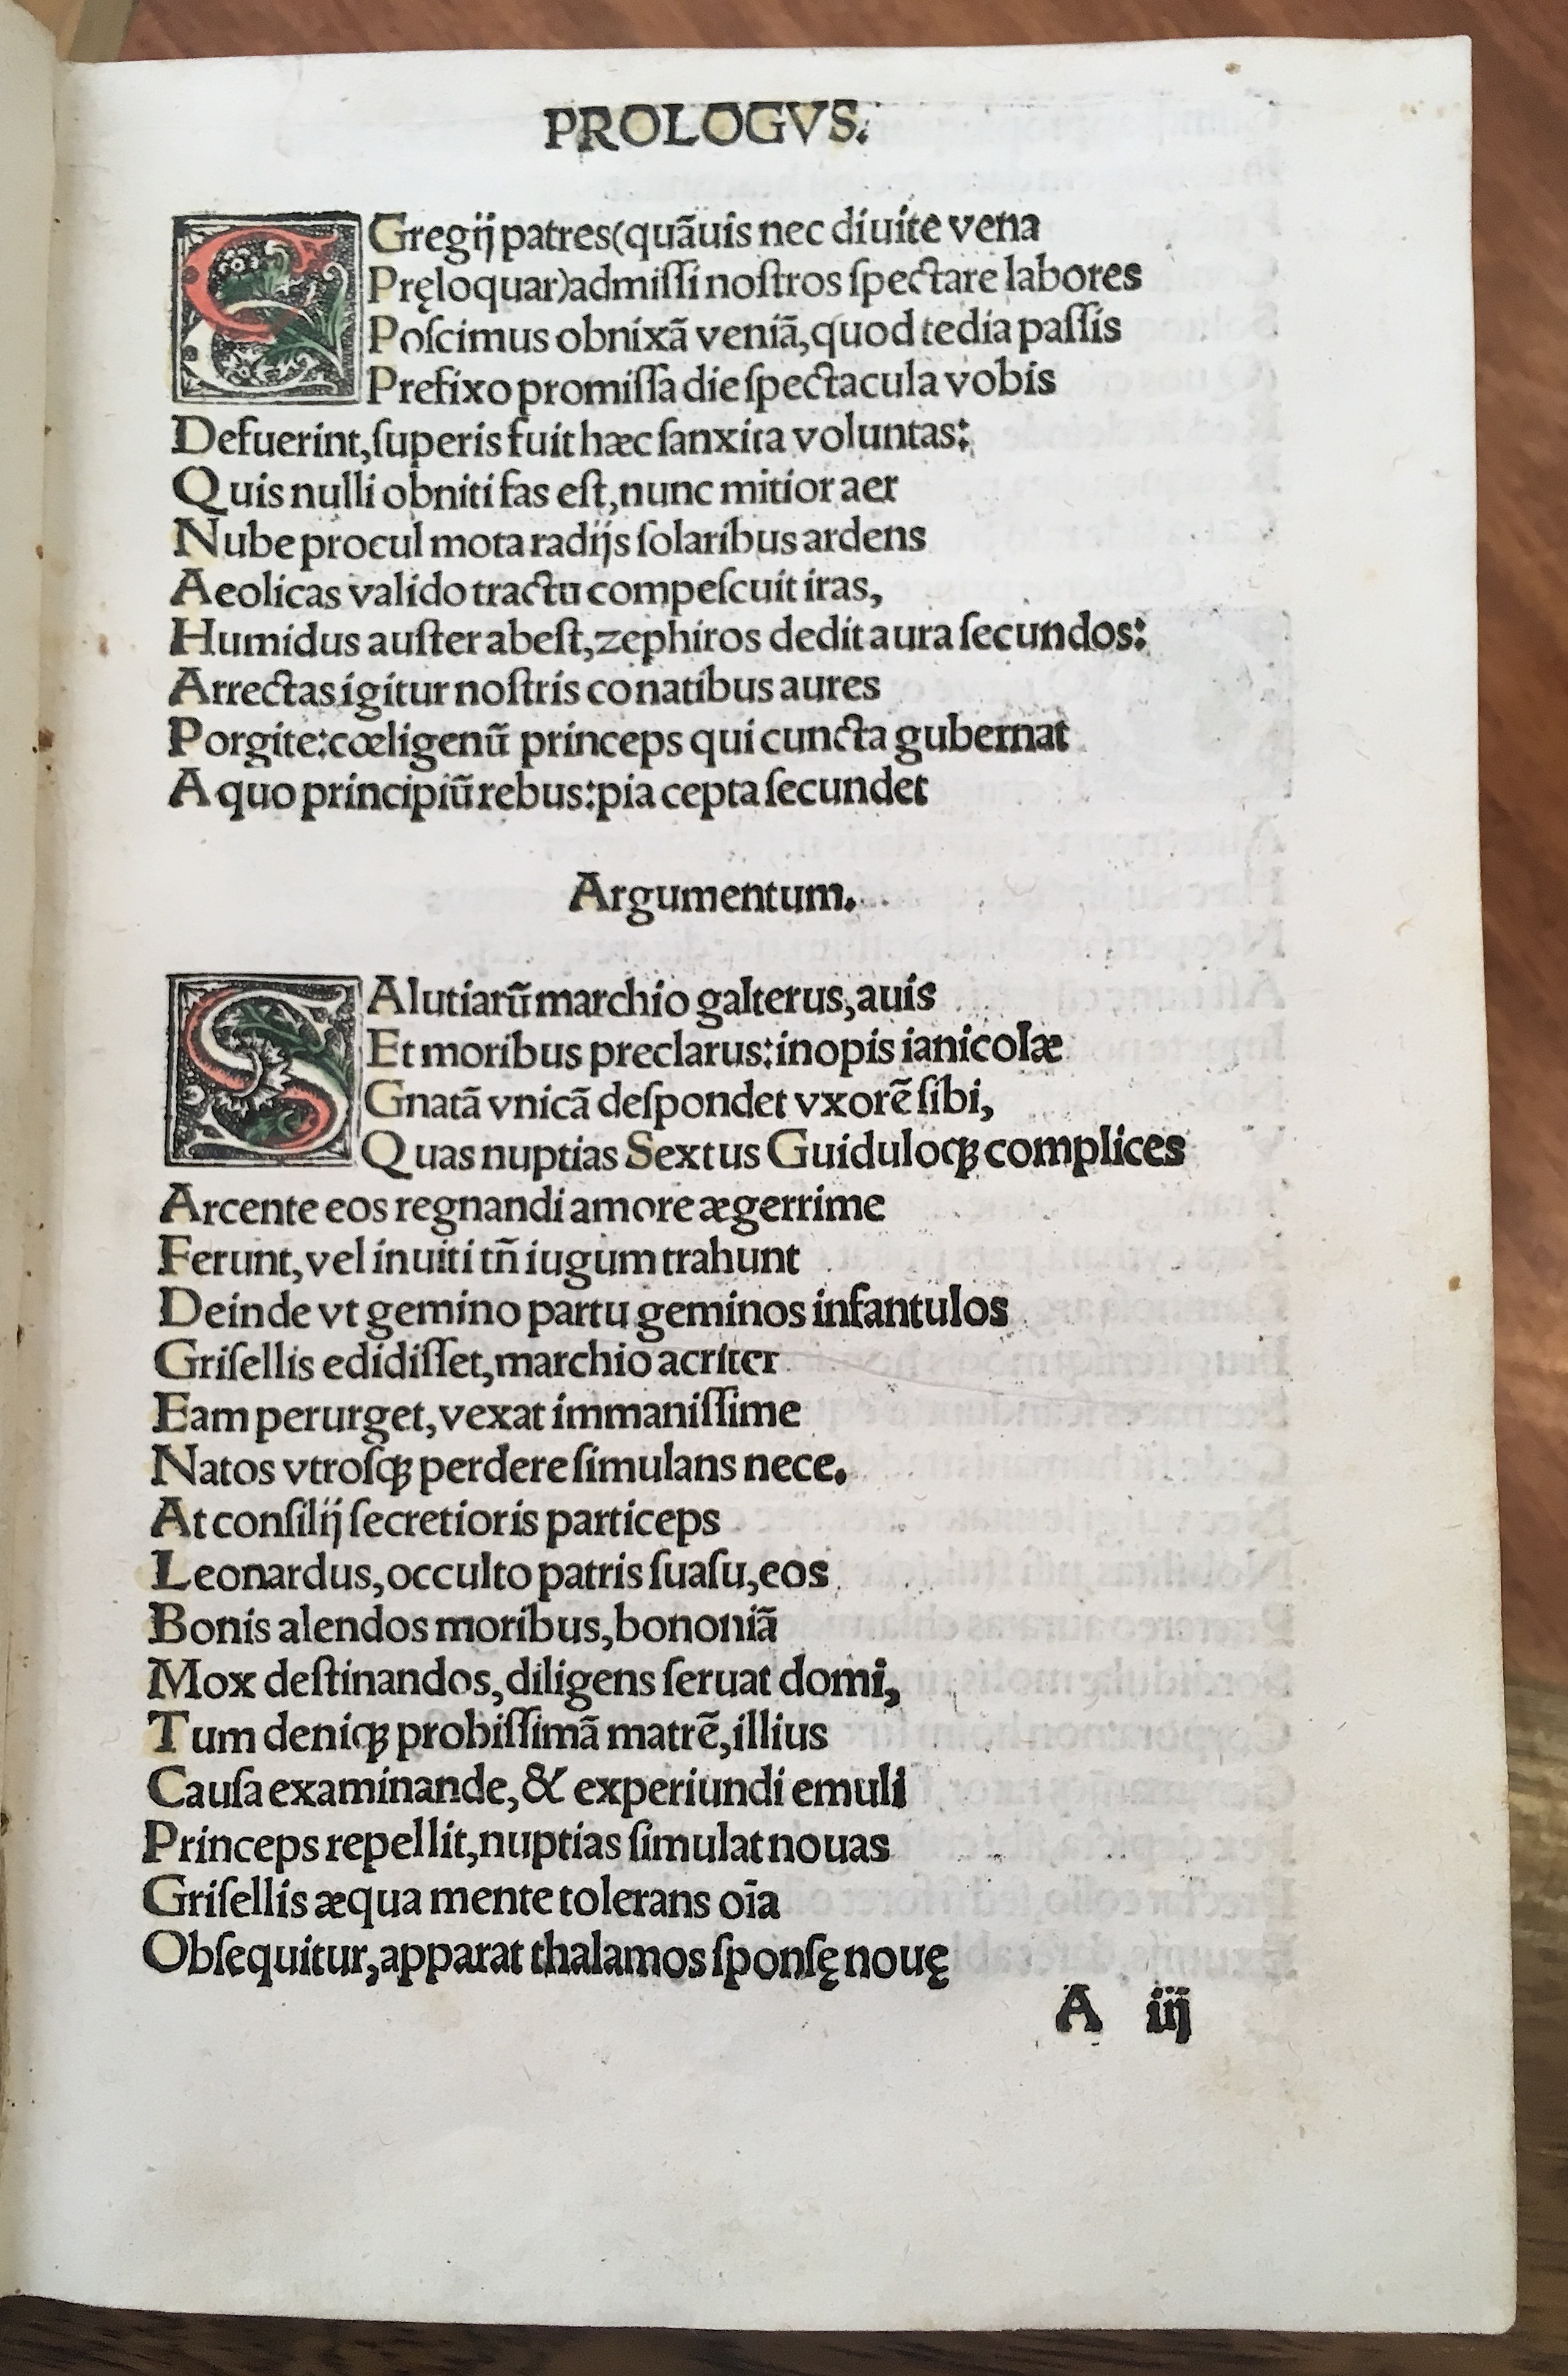 PROLOGVS.
EGregij patres(quãuis nec diuite vena
Pręloquar)admiſſi noſtros ſpectare labores
Poſcimus obnixã veniã,quod tedia paſſis
Prefixo promiſſa die ſpectacula vobis
Defuerint,ſuperis fuit hæc ſanxita voluntas:
Quis nulli obniti fas eſt,nunc mitior aer
Nube procul mota radijs ſolaribus ardens
Aeolicas valido tractu compeſcuit iras,
Humidus auſter abeſt,zephiros dedit aura ſecundos:
Arrectas igitur noſtris conatibus aures
Porgite:cœligenũ princeps qui cuncta gubernat
A quo principiũ rebus:pia cepta ſecundet
Argumentum.
SAlutiarũ marchio galterus,auis
Et moribus preclarus:inopis ianicolæ
Gnatã vnicã deſpondet vxorẽ ſibi,
Quas nuptias Sextus Guiduloqꝫ complices
Arcente eos regnandi amore ægerrime
Ferunt,vel inuiti tñ iugum trahunt
Deinde vt gemino partu geminos infantulos
Griſellis edidiſſet,marchio acriter
Eam perurget,vexat immaniſſime
Natos vtroſqꝫ perdere ſimulans nece.
At conſilij ſecretioris particeps
Leonardus,occulto patris ſuaſu,eos
Bonis alendos moribus,bononiã
Mox deſtinandos,diligens ſeruat domi,
Tum deniqꝫ probiſſimã matrẽ,illius
Cauſa examinande,& experiundi emuli
Princeps repellit,nuptias ſimulat nouas
Griſellis æqua mente tolerans oĩa
Obſequitur,apparat thalamos ſponſę nouę
A iij